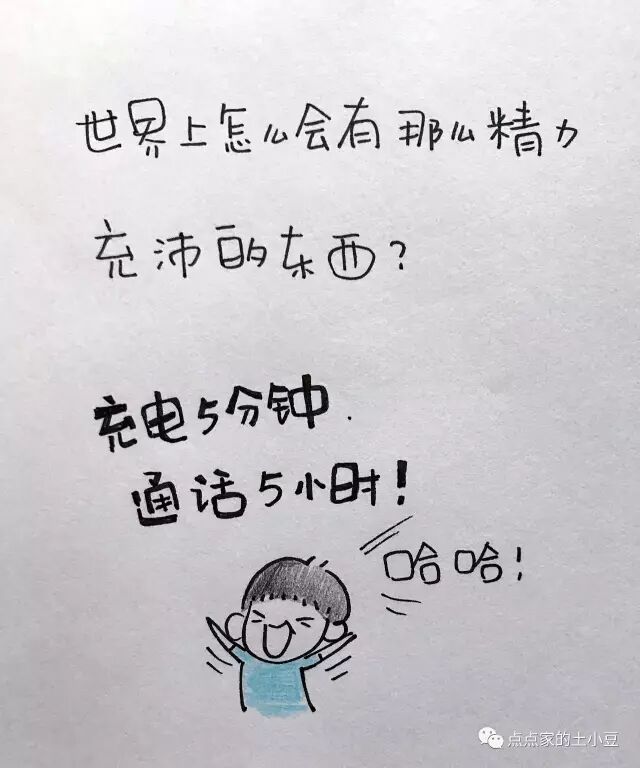 世界上怎么会有那么精力
充沛的东西?
充电5分钟.
通话5小时!
哈哈!
点点家的土小豆